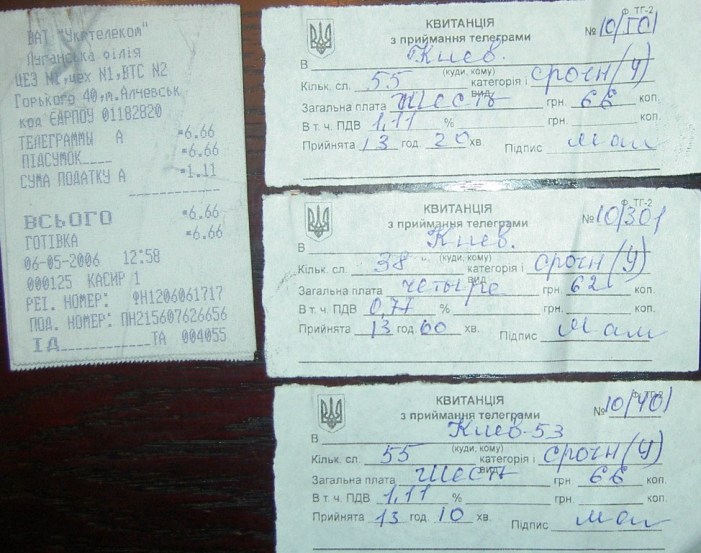 ВАТ "Укртелеком"
Луганська філія
ЦЕЗ N1,цех N1,ВТС N2
Горького 40,м.Алчевськ
код ЄДРПОУ 01182820
ТЕЛЕГРАММЫ А *6.66
ПІДСУМОК *6.66
СУМА ПОДАТКУ А *1.11
ВСЬОГО *6.66
ГОТІВКА *6.66
06-05-2006 12:58
000125 КАСИР 1
РЕІ. НОМЕР: ФН1206061717
ПОД. НОМЕР: ПН215607626656
ІД ТА 004055
ф. ТГ-2
КВИТАНЦІЯ №10/501
з приймання телеграми
В Киев.
(куди, кому)
Кільк. сл. 55 категорія і вид срочн(у)
Загальна плата шесть грн 66 коп.
В т. ч. ПДВ 1,11 %
Прийнята 13 год 20 хв. Підпис
Ф. ТГ-2
КВИТАНЦІЯ №10/301
з приймання телеграми
В Киев.
(куди, кому)
Кільк. сл. 38 категорія і вид срочн(у)
Загальна плата четыре грн 62 коп.
В т. ч. ПДВ 0,77 %
Прийнята 13 год 00 хв. Підпис
ф. ТГ-2
КВИТАНЦІЯ №10/401
з приймання телеграми
В Киев-53
(куди, кому)
Кільк. сл. 55 категорія і вид срочн(у)
Загальна плата шесть грн 66 коп.
В т. ч. ПДВ 1,11 %
Прийнята 13 год. 10 хв. Підпис